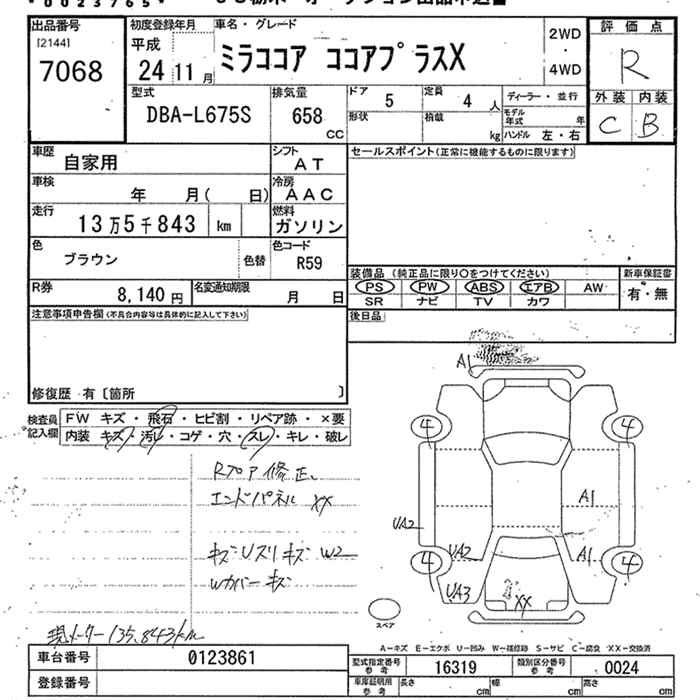 *0023765*
出品番号 [2144] 7068
初度登録年月 平成 24 11月
車名・グレード ミラココア ココアプラスX
2WD・4WD
評価点 R
外装 内装
C B
型式 DBA-L675S
排気量 658 CC
ドア 5
定員 4 人
形状
積載 kg
ディーラー・並行
モデル年式 年
ハンドル 左・右
車歴 自家用
シフト AT
車検 年 月( 日)
冷房 AAC
走行 13万5千843 km
燃料 ガソリン
色 ブラウン 色替
色コード R59
R券 8,140円
名変通知期限 月 日
セールスポイント(正常に機能するものに限ります)
装備品 (純正品に限り○をつけてください)
PS PW ABS エアB AW
SR ナビ TV カワ
新車保証書 有・無
後日品
注意事項申告欄(不具合内容等は具体的に記入して下さい)
修復歴 有〔箇所 〕
検査員記入欄
FW キズ・飛石・ヒビ割・リペア跡・×要
内装 キズ・汚レ・コゲ・穴・スレ・キレ・破レ
Rフロア修正、
エンドパネル XX
キズ Uスリキズ W2
Wカバーキズ
現メーター135.843km
A1
4 4
A1
UA2
UA2 A1
4 4
UA3 XX
スペア
A-キズ E-エクボ U-凹み W-補修跡 S-サビ C-腐食 XX-交換済
車台番号 0123861
登録番号
型式指定番号 参考 16319
類別区分番号 参考 0024
車庫証明用 参考 長さ cm 幅 cm 高さ cm